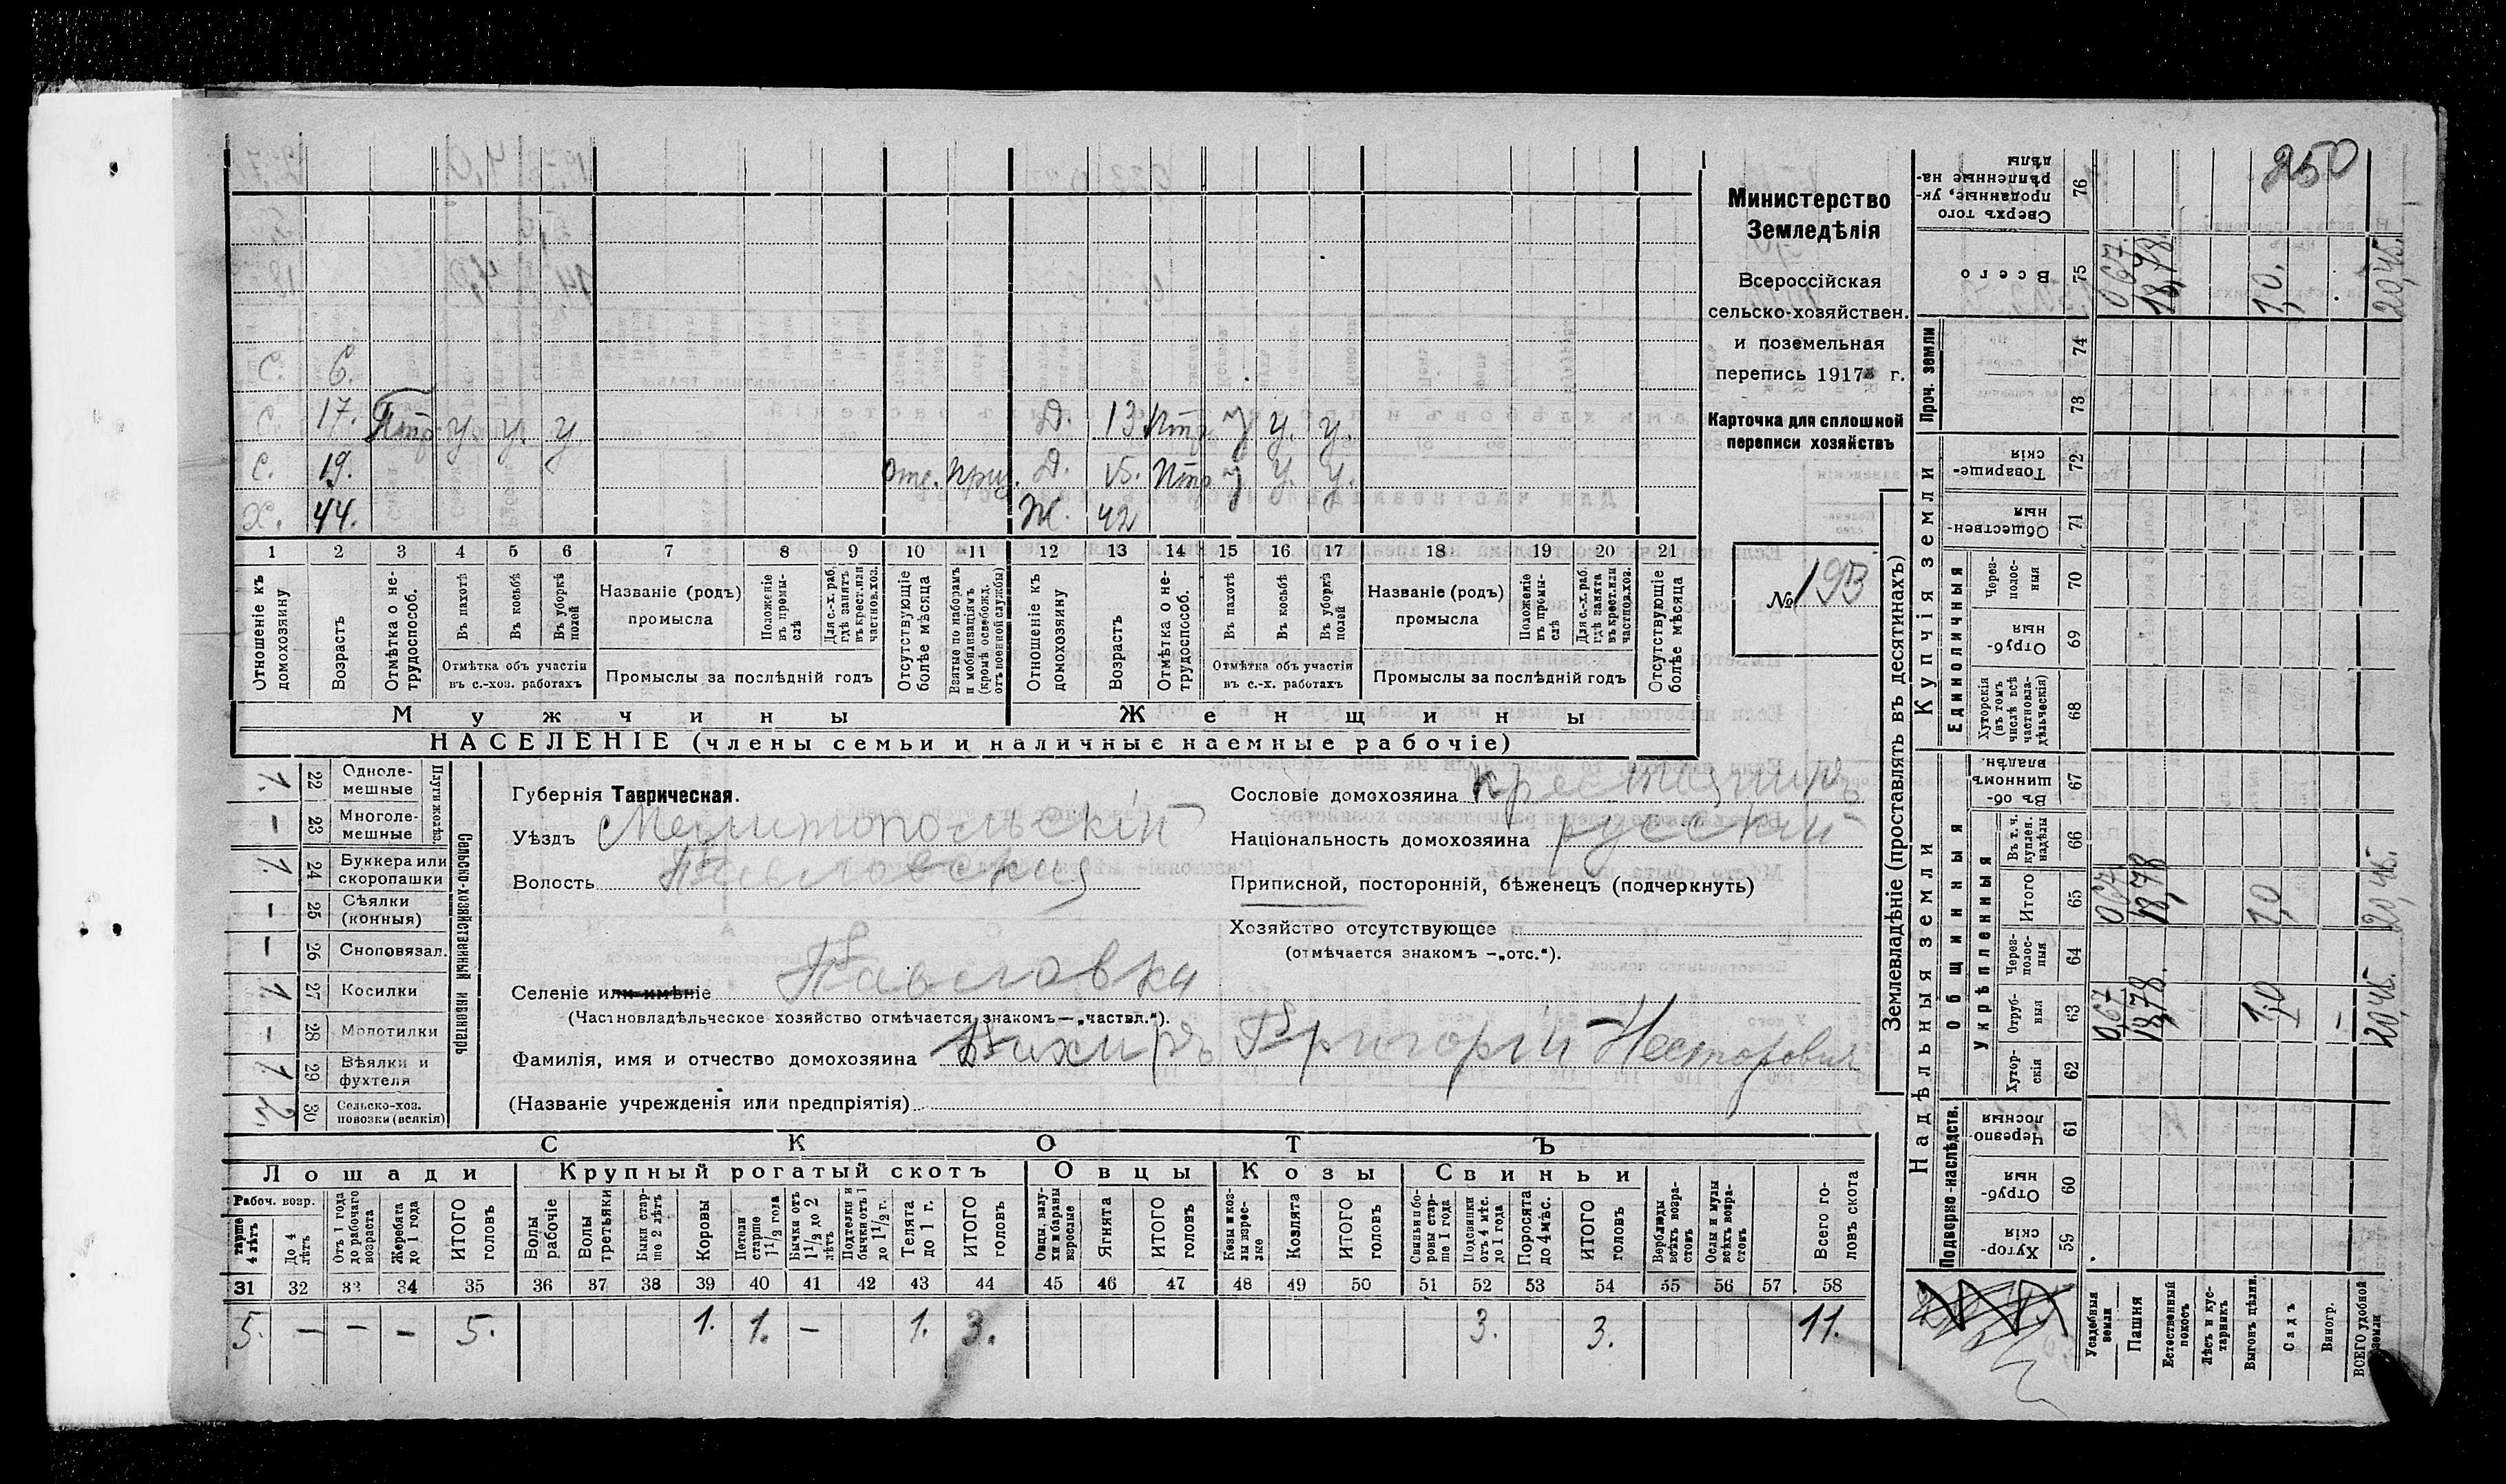 250
Министерство
Земледѣлія
Всероссійская
сельско-хозяйствен.
и поземельная
перепись 1917 г.
Карточка для сплошной
переписи хозяйствъ
№ 193
С. 6.
С. 17. у у. у Д. 13 у у. у.
С. 19. Отс. Д. 15. у у. у.
Х. 44. Ж. 42
1 2 3 4 5 6 7 8 9 10 11 12 13 14 15 16 17 18 19 20 21
Отношеніе къ домохозяину
Возрастъ
Отмѣтка о не-трудоспособ.
Въ пахотѣ
Въ косьбѣ
Въ уборкѣ полей
Отмѣтка объ участіи
въ с.-хоз. работахъ
Названіе (родъ)
промысла
Положеніе въ промы-слѣ
Для с.-х. раб. гдѣ занятъ въ крест. или частнов. хоз.
Промыслы за послѣдній годъ
Отсутствующіе болѣе мѣсяца
Взятые по наборамъ и мобилизаціямъ (кромѣ освобожд. отъ военной службы)
Отношеніе къ домохозяину
Возрастъ
Отмѣтка о не-трудоспособ.
Въ пахотѣ
Въ косьбѣ
Въ уборкѣ полей
Отмѣтка объ участіи
въ с.-х. работахъ
Названіе (родъ)
промысла
Положеніе въ промы-слѣ
Для с.-х. раб. гдѣ занята въ крест. или частнов. хоз.
Промыслы за послѣдній годъ
Отсутствующіе болѣе мѣсяца
Мужчины Женщины
НАСЕЛЕНІЕ (члены семьи и наличные наемные рабочіе)
Сельско-хозяйственный инвентарь
Плуги желѣз.
1. 22 Одноле-мешные
– 23 Многоле-мешные
1. 24 Буккера или скоропашки
– 25 Сѣялки (конныя)
– 26 Сноповязал.
1. 27 Косилки
– 28 Молотилки
1 29 Вѣялки и фухтеля
2. 30 Сельско-хоз. повозки (всякія)
Губернія Таврическая.
Уѣздъ Мелитопольскій
Волость Павловская
Селеніе или имѣніе Павловка
(Частновладѣльческое хозяйство отмѣчается знакомъ—„частвл.“).
Фамилія, имя и отчество домохозяина Вихирь Григорій Несторовичъ
(Названіе учрежденія или предпріятія)
Сословіе домохозяина крестьянинъ
Національность домохозяина русскій
Приписной, посторонній, бѣженецъ (подчеркнуть)
Хозяйство отсутствующее
(отмѣчается знакомъ —„отс.“).
СКОТЪ
Лошади Крупный рогатый скотъ Овцы Козы Свиньи
Рабоч. возр.
старше 4 лѣтъ
До 4 лѣтъ
Отъ 1 года до рабочаго возраста
Жеребята до 1 года
ИТОГО головъ
Волы рабочіе
Волы третьяки
Быки стар-ше 2 лѣтъ
Коровы
Нетели старше 1 1/2 года
Бычки отъ 1 1/2 до 2 лѣтъ
Подтелки и бычки отъ 1 до 1 1/2 г.
Телята до 1 г.
ИТОГО головъ
Овцы, валу-хи и бараны взрослые
Ягнята
ИТОГО головъ
Козы и коз-лы взрос-лые
Козлята
ИТОГО головъ
Свиньи и бо-ровы стар-ше 1 года
Подсвинки отъ 4 мѣс. до 1 года
Поросята до 4 мѣс.
ИТОГО головъ
Верблюды всѣхъ возра-стовъ
Ослы и мулы всѣхъ возра-стовъ
Всего го-ловъ скота
31 32 33 34 35 36 37 38 39 40 41 42 43 44 45 46 47 48 49 50 51 52 53 54 55 56 57 58
5. – – – 5. 1. 1. – 1. 3. 3. 3. 11.
Землевладѣніе (проставлять въ десятинахъ)
Надѣльныя земли
Купчія земли
Проч. земли
Подворно-наслѣдств.
Общинныя
Укрѣпленныя
Единоличныя
Хутор-скія 59
Отруб-ныя 60
Черезпо-лосныя 61
Хутор-скія 62
Отруб-ныя 63
Через-полос-ныя 64
Итого 65
Въ т. ч. куплен. надѣлы 66
Въ об-щинномъ владѣн. 67
Хуторскія (въ томъ числѣ всѣ частновла-дѣльческія) 68
Отруб-ныя 69
Через-полос-ныя 70
Обществен-ныя 71
Товарище-скія 72
73
74
Всего 75
Сверхъ того проданные, ук-рѣпленные на-дѣлы 76
Усадебныя земли 0,67 0,67 0,67.
Пашня 18,78. 18,78 18,78
Естественный покосъ
Лѣсъ и кус-тарникъ
Выгонъ цѣлин. 1,0 1,0 1,0.
Садъ
Виногр. –
ВСЕГО удобной земли 20,45. 20,45. 20,45.